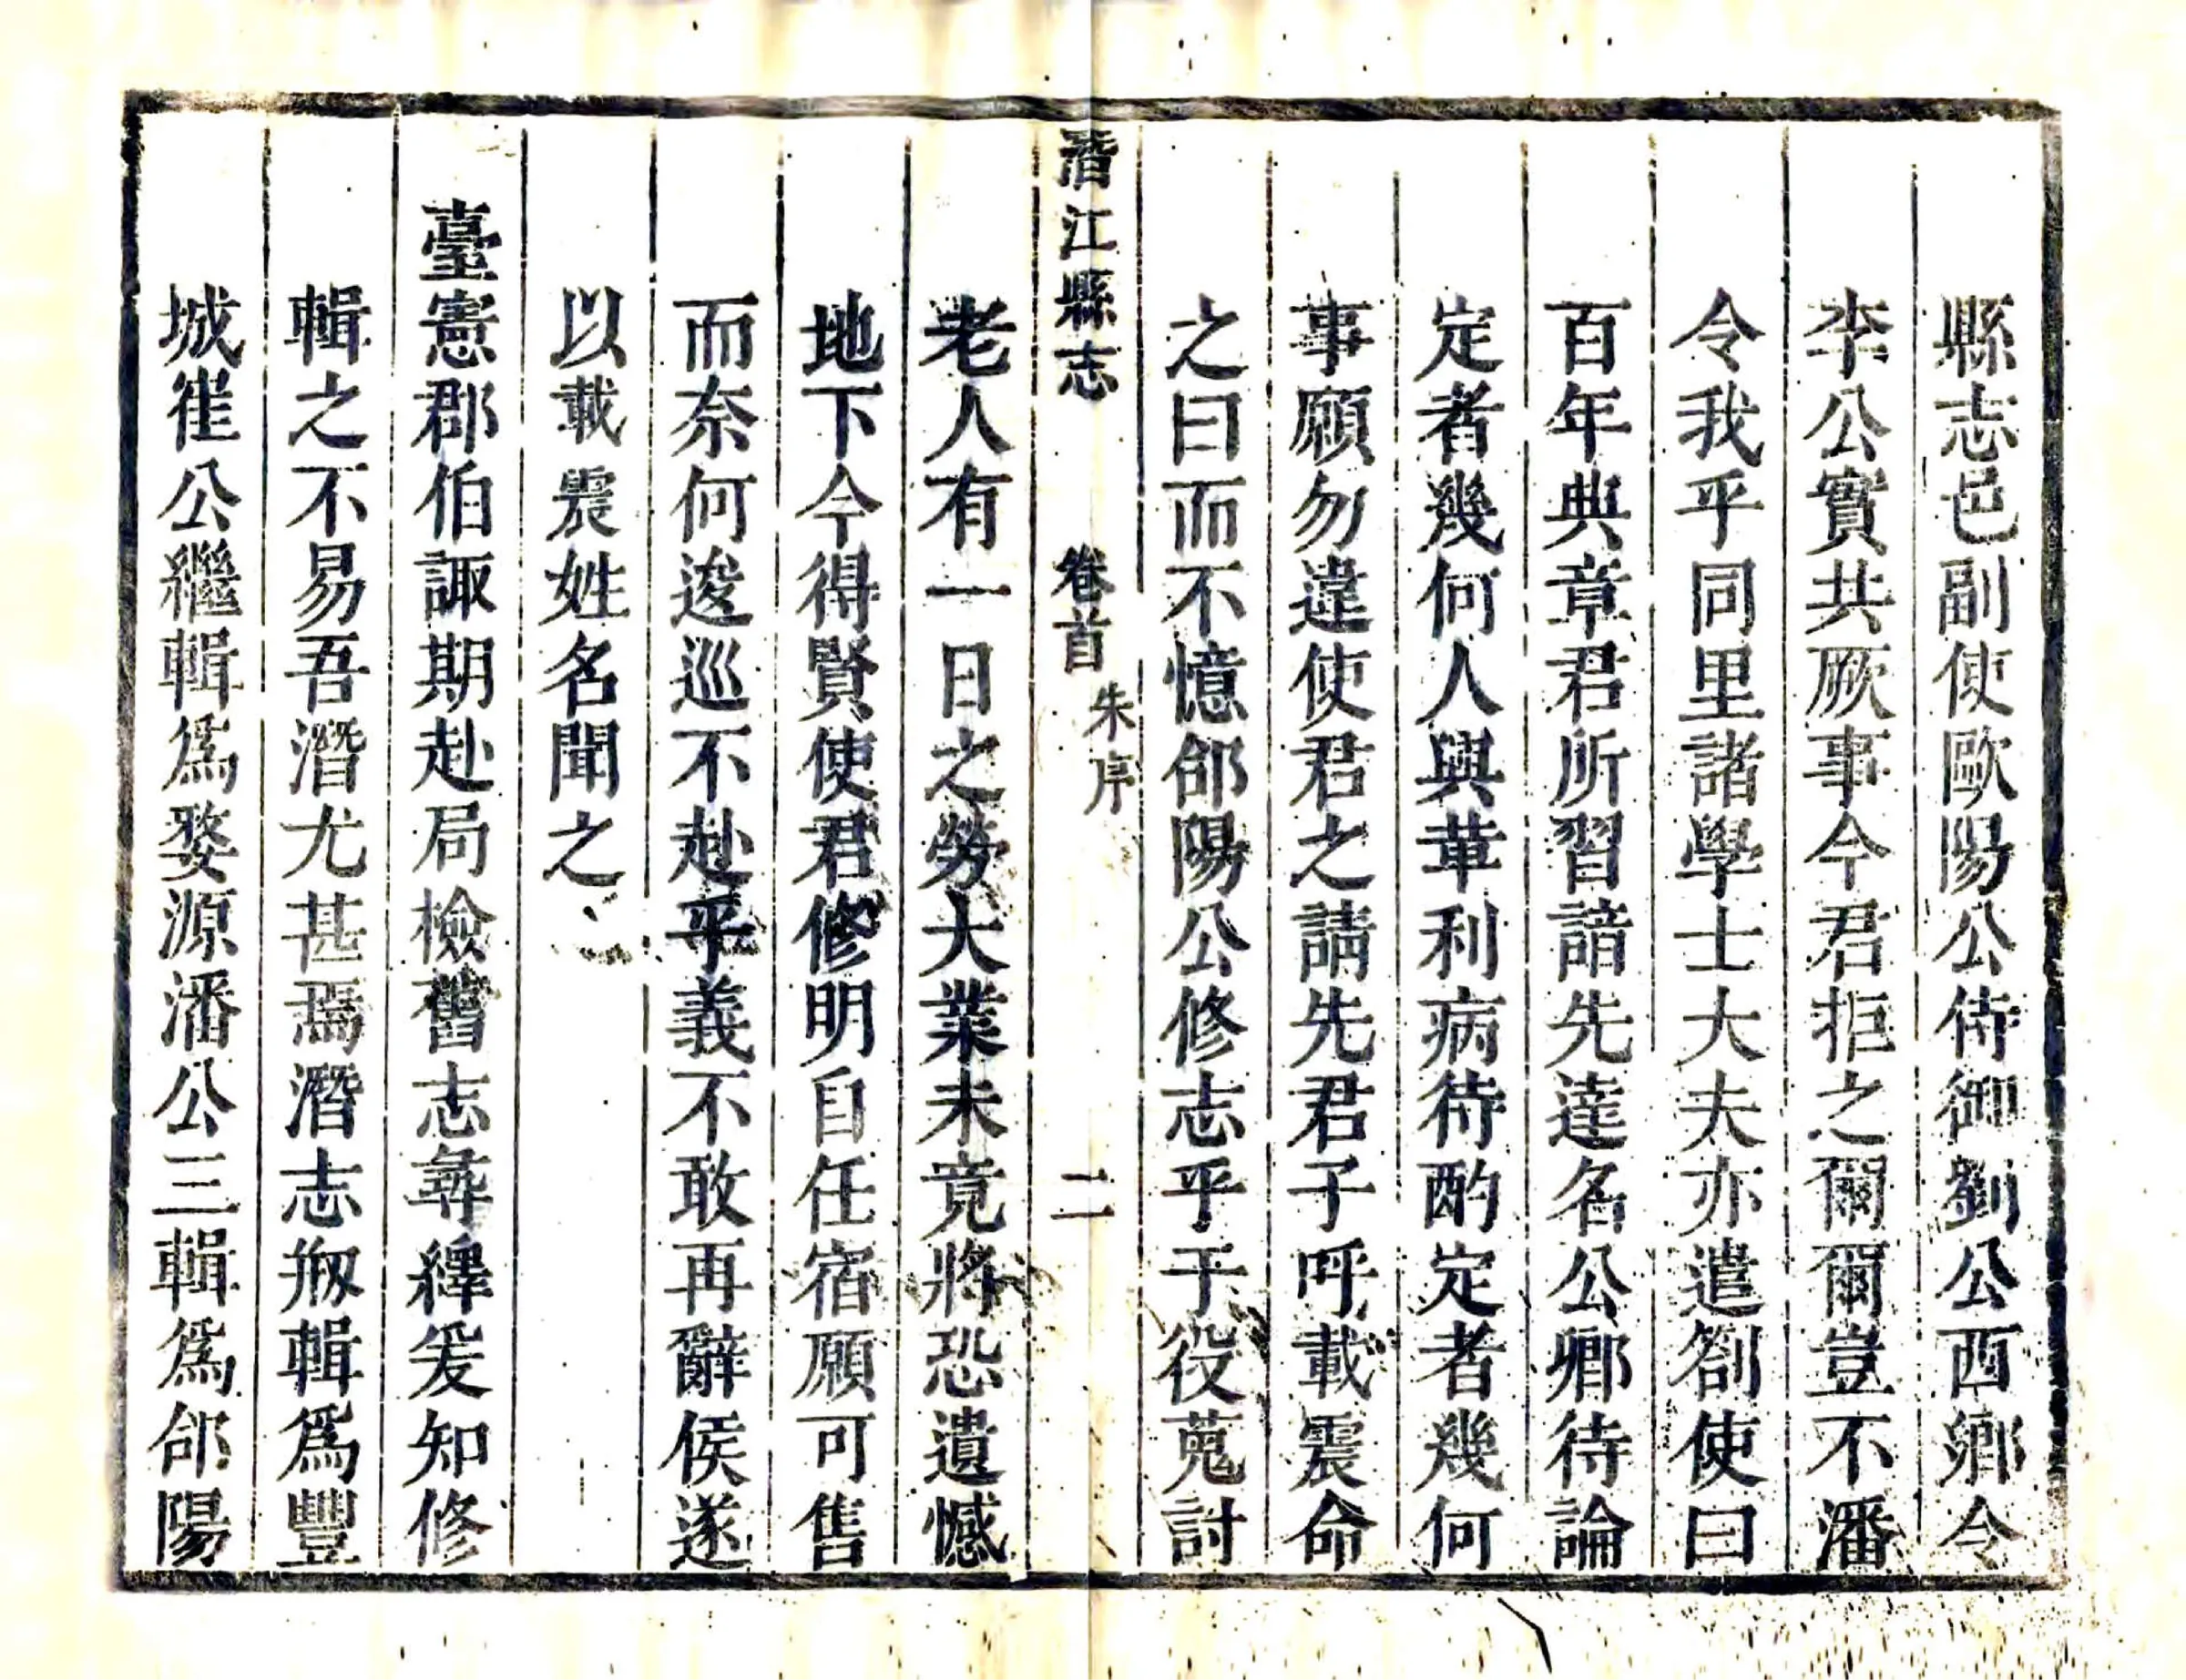 縣志邑副使歐陽公侍御劉公西鄉令
李公實共厥事今君拒之爾爾豈不潘
令我乎同里諸學士大夫亦遣劄使曰
百年典章君所習諳先達名公鄉待論
定者幾何人與革利病待酌定者幾何
事願勿違使君之請先君子呼載震命
之曰而不憶郃陽公修志乎于役蒐討
潛江縣志 卷首 朱序 二
老人有一日之勞大業未竟將恐遺憾
地下今得賢使君修明自任宿願可售
而奈何逡巡不赴乎義不敢再辭侯遂
以載震姓名聞之
臺憲郡伯諏期赴局檢舊志尋繹爰知修
輯之不易吾潛尤甚焉潛志刱輯爲豐
城崔公繼輯爲婺源潘公三輯爲郃陽